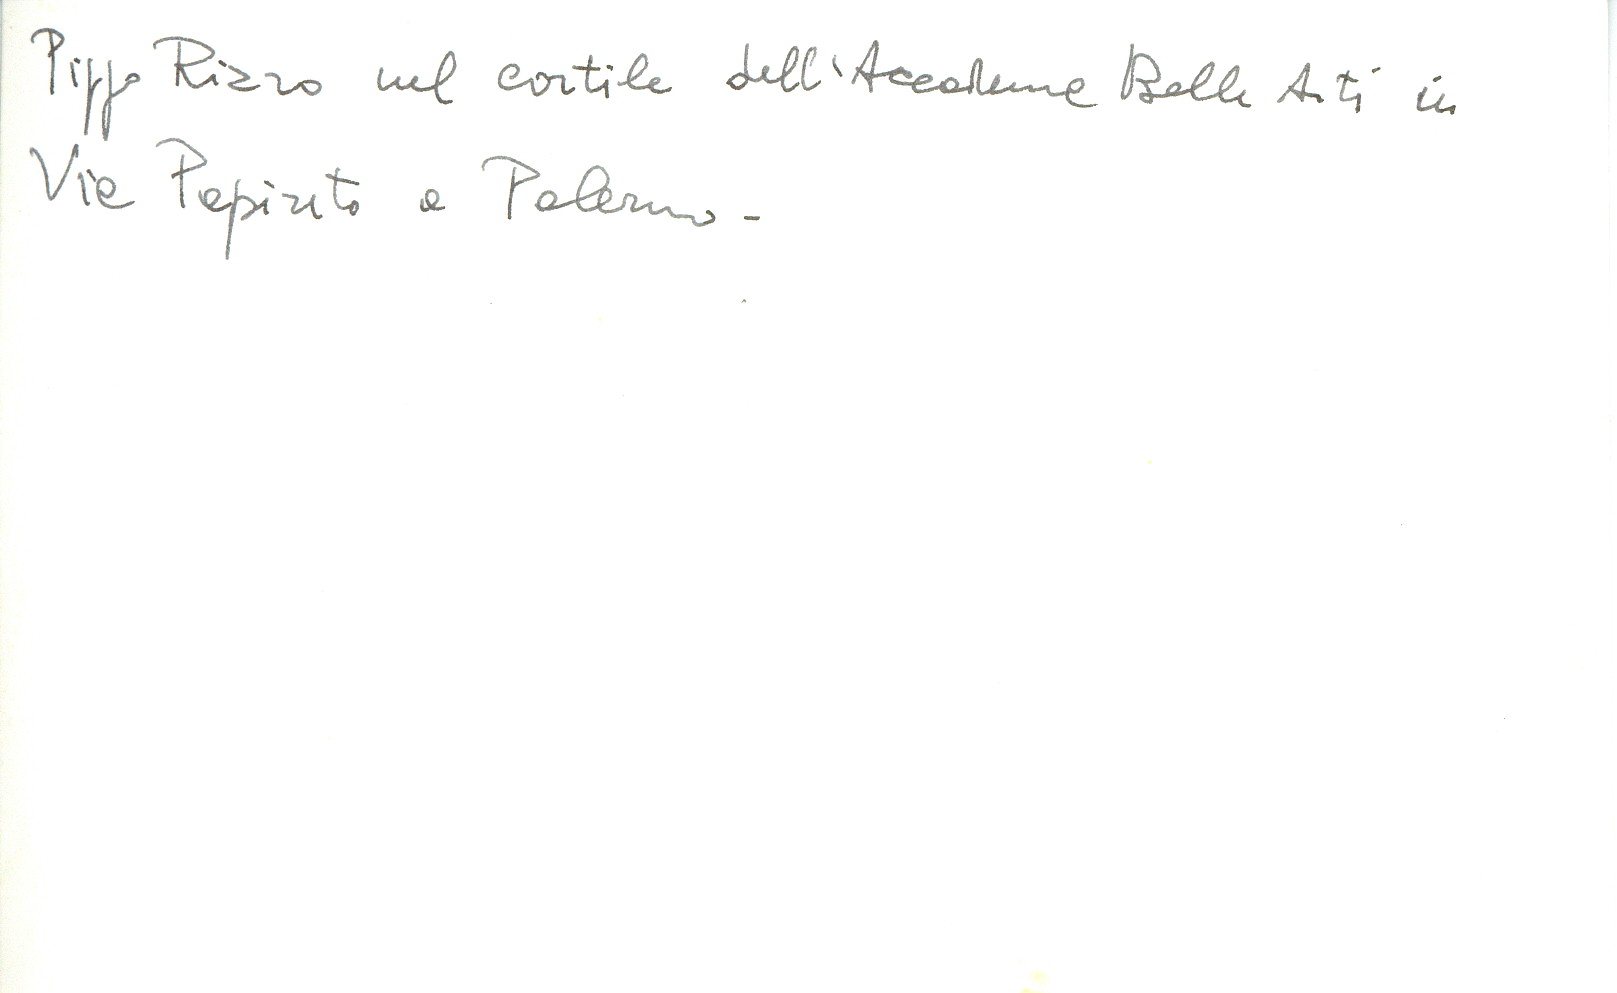 Pippo Rizzo nel cortile dell'Accademia Belle Arti in
Via Papireto a Palermo -